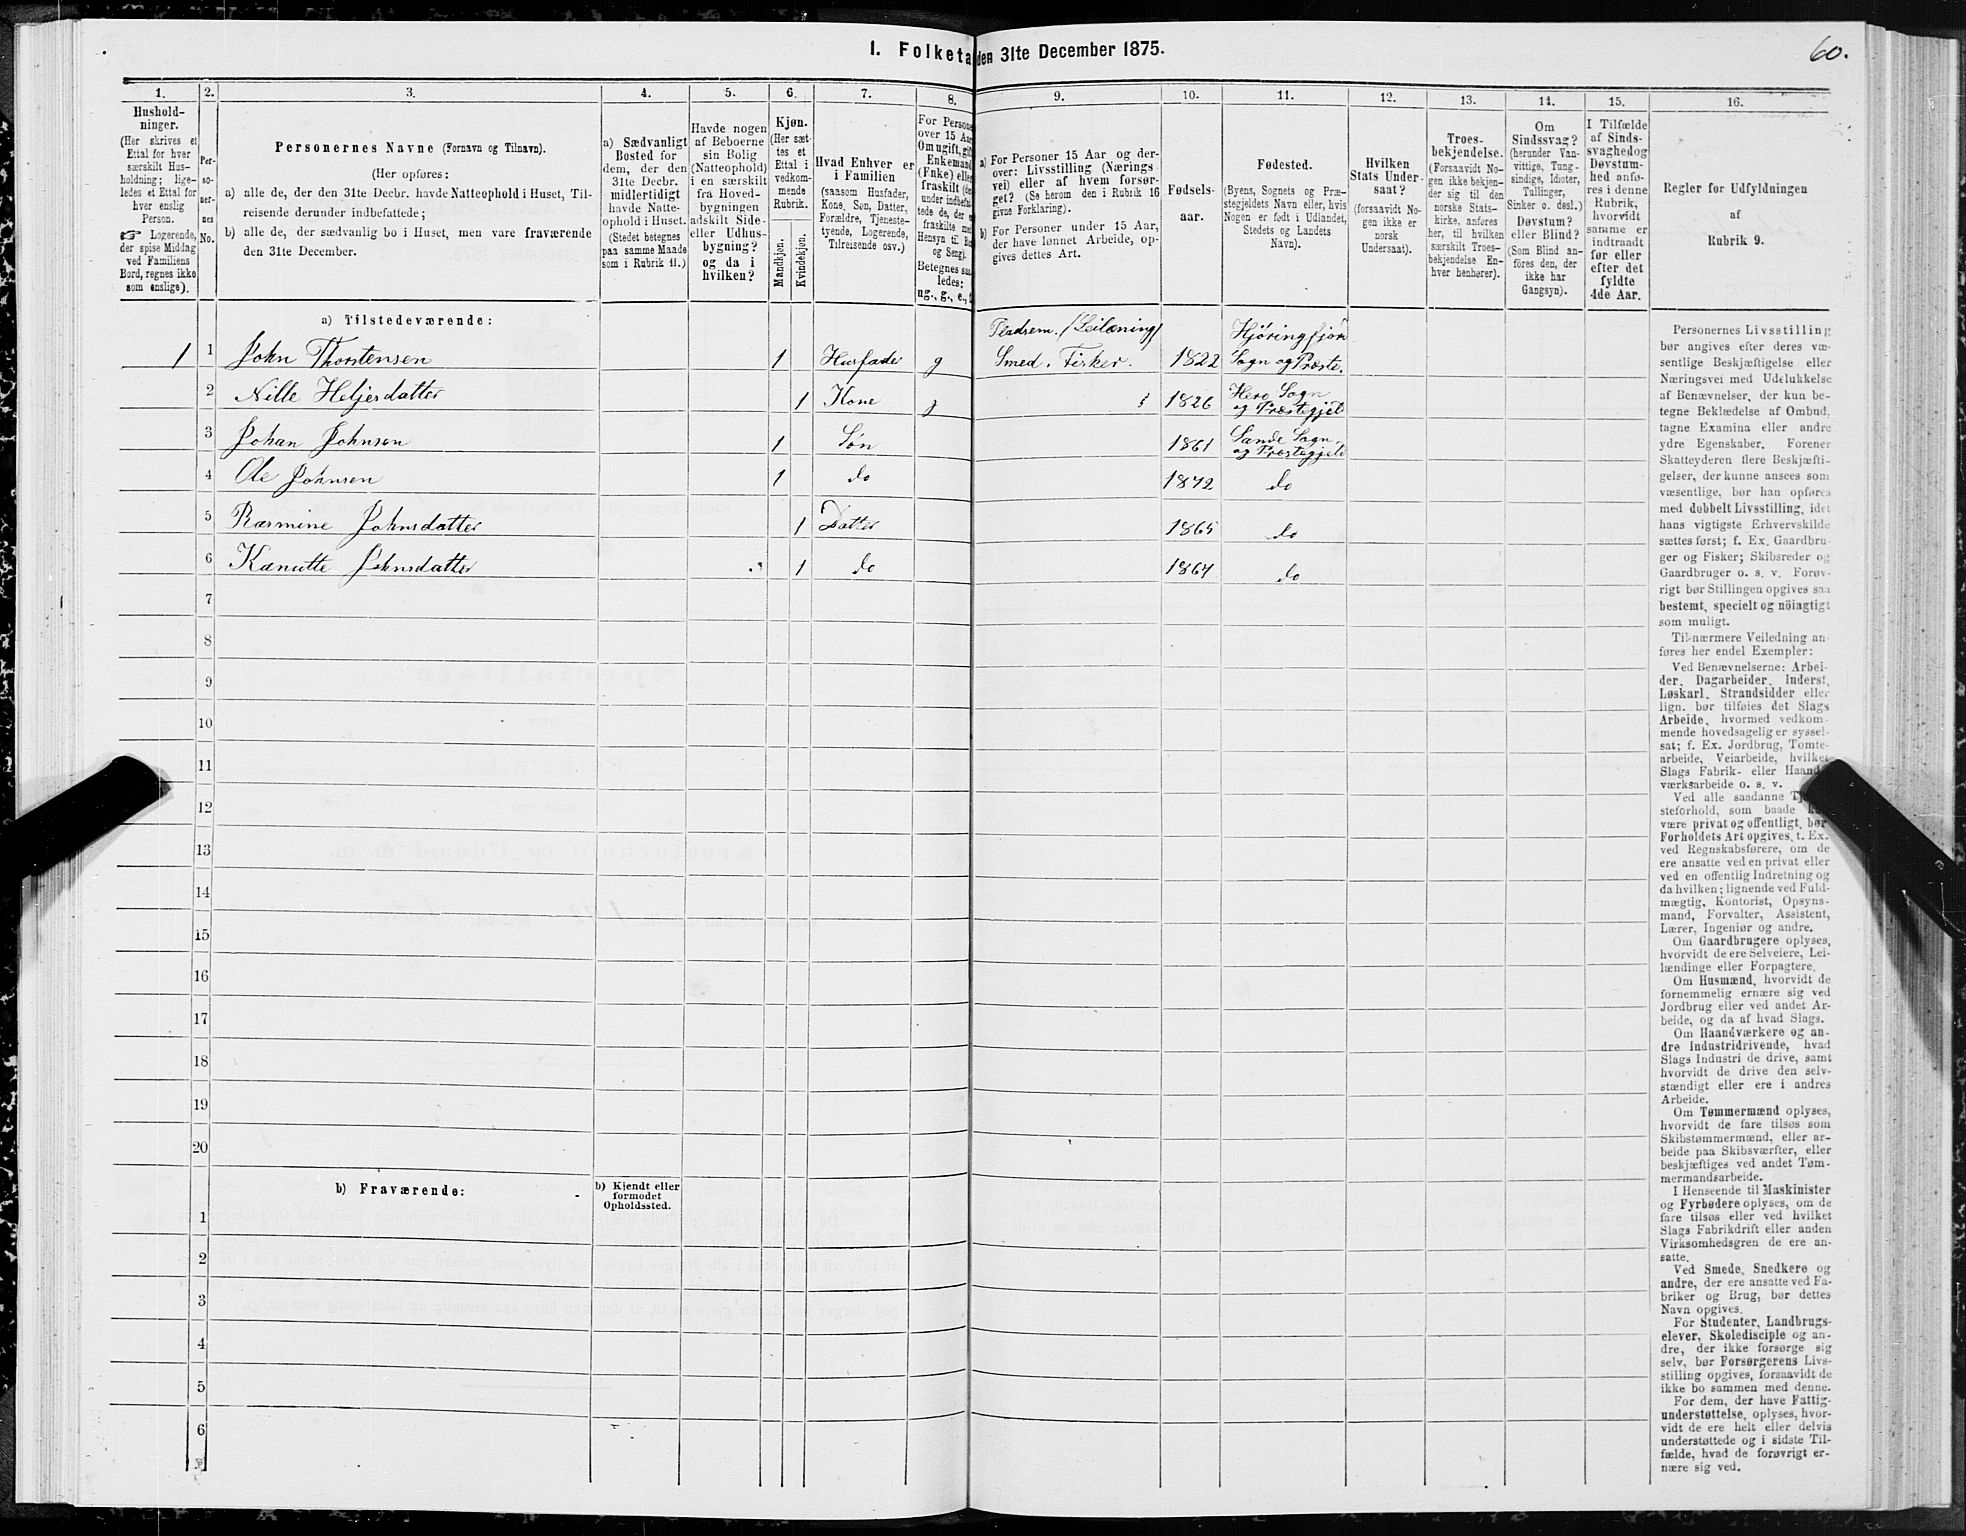 60.
1. Folketa den 31te December 1875.
1. 2. 3. 4. 5. 6. 7. 8. 9. 10. 11. 12. 13. 14. 15. 16.
Hushold-
ninger.
(Her skrives et
Ettal for hver
særskilt Hus-
holdning; lige-
ledes et Ettal for
hver enslig
Person.
☞ Logerende,
der spise Middag
ved Familiens
Bord, regnes ikke
som enslige).
Per-
so-
ner-
nes
No.
Personernes Navne (Fornavn og Tilnavn).
(Her opføres:
a) alle de, der den 31te Decbr. havde Natteophold i Huset, Til-
reisende derunder indbefattede;
b) alle de, der sædvanlig bo i Huset, men vare fraværende
den 31te December.
a) Sædvanligt
Bosted for
dem, der den
31te Decbr.
midlertidigt
havde Natte-
ophold i Huset.
(Stedet betegnes
paa samme Maade
som i Rubrik 11.)
Havde nogen
af Beboerne
sin Bolig
(Natteophold)
i en særskilt
fra Hoved-
bygningen
adskilt Side-
eller Udhus-
bygning?
og da i
hvilken?
Kjøn.
(Her sæt-
tes et
Ettal i
vedkom-
mende
Rubrik.
Mandkjøn.
Kvindekjøn.
Hvad Enhver er
i Familien
(saasom Husfader,
Kone, Søn, Datter,
Forældre, Tjeneste-
tyende, Logerende,
Tilreisende osv.)
For Persone
over 15 Aar
Om ugift, gift
Enkemand
(Enke) eller
fraskilt (de
under indbefat-
tede de, der e
fraskilte med
Hensyn til Bo
og Seng).
Betegnes saa
ledes:
ug., g., e.,
a) For Personer 15 Aar og der-
over: Livsstilling (Nærings
vei) eller af hvem forsør-
get? (Se herom den i Rubrik 16
givne Forklaring).
b) For Personer under 15 Aar,
der have lønnet Arbeide, op-
gives dettes Art.
Fødsels-
aar.
Fødested.
(Byens, Sognets og Præ-
stegjeldets Navn eller, hvis
Nogen er født i Udlandet,
Stedets og Landets
Navn).
Hvilken
Stats Under-
saat?
(forsaavidt No-
gen ikke er
norsk
Undersaat).
Troes-
bekjendelse.
(Forsaavidt No-
gen ikke bekjen-
der sig til den
norske Stats-
kirke, anføres
her, til hvilken
særskilt Troes-
bekjendelse En-
hver henhører).
Om
Sindssvag?
(herunder Van-
vittige, Tung-
sindige, Idioter,
Tullinger,
Sinker o. desl.)
Døvstum?
eller Blind?
(Som Blind an-
føres den, der
ikke har
Gangsyn).
I Tilfælde
af Sinds-
svaghed og
Døvstum-
hed anfø-
res i denne
Rubrik,
hvorvidt
samme er
indtraadt
før eller
efter det
fyldte
4de Aar.
Regler for Udfyldningen
af
Rubrik 9.
a) Tilstedeværende:
1 1 John Thorstensen 1 Husfader g Pladsem. (Leilæning) Smed. Fisker. 1822 Hjøringfjor Sogn og Præste.
2 Nille Heljesdatter 1 Kone g 1826 Herø Sogn og Præstegjeld
3 Johan Johnsen 1 Søn 1861 Sande Sogn og Præstegjeld
4 Ole Johnsen 1 do 1872 do
5 Rasmine Johnsdatter 1 Datter 1865 do
6 Kanutte Johnsdatter 1 do 1867 do
7
8
9
10
11
12
13
14
15
16
17
18
19
20
b) Fraværende:
b) Kjendt eller
formodet
Opholdssted.
1
2
3
4
5
6
Personernes Livsstilling
bør angives efter deres væ-
sentlige Beskjæftigelse eller
Næringsvei med Udelukkelse
af Benævnelser, der kun be-
tegne Beklædelse af Ombud,
tagne Examina eller andre
ydre Egenskaber. Forener
Skatteyderen flere Beskjæfti-
gelser, der kunne ansees som
væsentlige, bør han opføres
med dobbelt Livsstilling, idet
hans vigtigste Erhvervskilde
sættes først; f. Ex. Gaardbru-
ger og Fisker; Skibsreder og
Gaardbruger o. s. v. Forøv-
rigt bør Stillingen opgives saa
bestemt, specielt og nöiagtigt
som muligt.
Til nærmere Veiledning an-
føres her endel Exempler:
Ved Benævnelserne: Arbei-
der, Dagarbeider, Inderst,
Løskarl, Strandsidder eller
lign. bør tilføies det Slags
Arbeide, hvormed vedkom-
mende hovedsagelig er syssel-
sat; f. Ex. Jordbrug, Tomte-
arbeide, Veiarbeide, hvilket
Slags Fabrik- eller Haand-
værksarbeide o. s. v.
Ved alle saadanne Tj
steforhold, som baade k
være privat og offentligt, bør
Forholdets Art opgives, t. Ex.
ved Regnskabsførere, om de
ere ansatte ved en privat eller
ved en offentlig Indretning og
da hvilken; lignende ved Fuld-
mægtig, Kontorist, Opsyns-
mand, Forvalter, Assistent,
Lærer, Ingeniør og andre.
Om Gaardbrugere oplyses,
hvorvidt de ere Selveiere, Lei-
lændinge eller Forpagtere.
Om Husmænd, hvorvidt de
fornemmelig ernære sig ved
Jordbrug eller ved andet Ar-
beide, og da af hvad Slags.
Om Haandværkere og an-
dre Industridrivende, hvad
Slags Industri de drive, samt
hvorvidt de drive den selv-
stændigt eller ere i andres
Arbeide.
Om Tømmermænd oplyses,
hvorvidt de fare tilsøs som
Skibstømmermænd, eller ar-
beide paa Skibsværfter, eller
beskjæftiges ved andet Tøm-
mermandsarbeide.
I Henseende til Maskinister
og Fyrbødere oplyses, om de
fare tilsøs eller ved hvilket
Slags Fabrikdrift eller anden
Virksomhedsgren de ere an-
satte.
Ved Smede, Snedkere og
andre, der ere ansatte ved Fa-
briker og Brug, bør dettes
Navn opgives.
For Studenter, Landbrugs-
elever, Skoledisciple og an-
dre, der ikke forsørge sig
selv, bør Forsørgerens Livs-
stilling opgives, forsaavidt de
ikke bo sammen med denne.
For dem, der have Fattig-
understøttelse, oplyses, hvor-
vidt de ere helt eller delvis
understøttede og i sidste Til-
fælde, hvad de forøvrigt er-
nære sig ved.